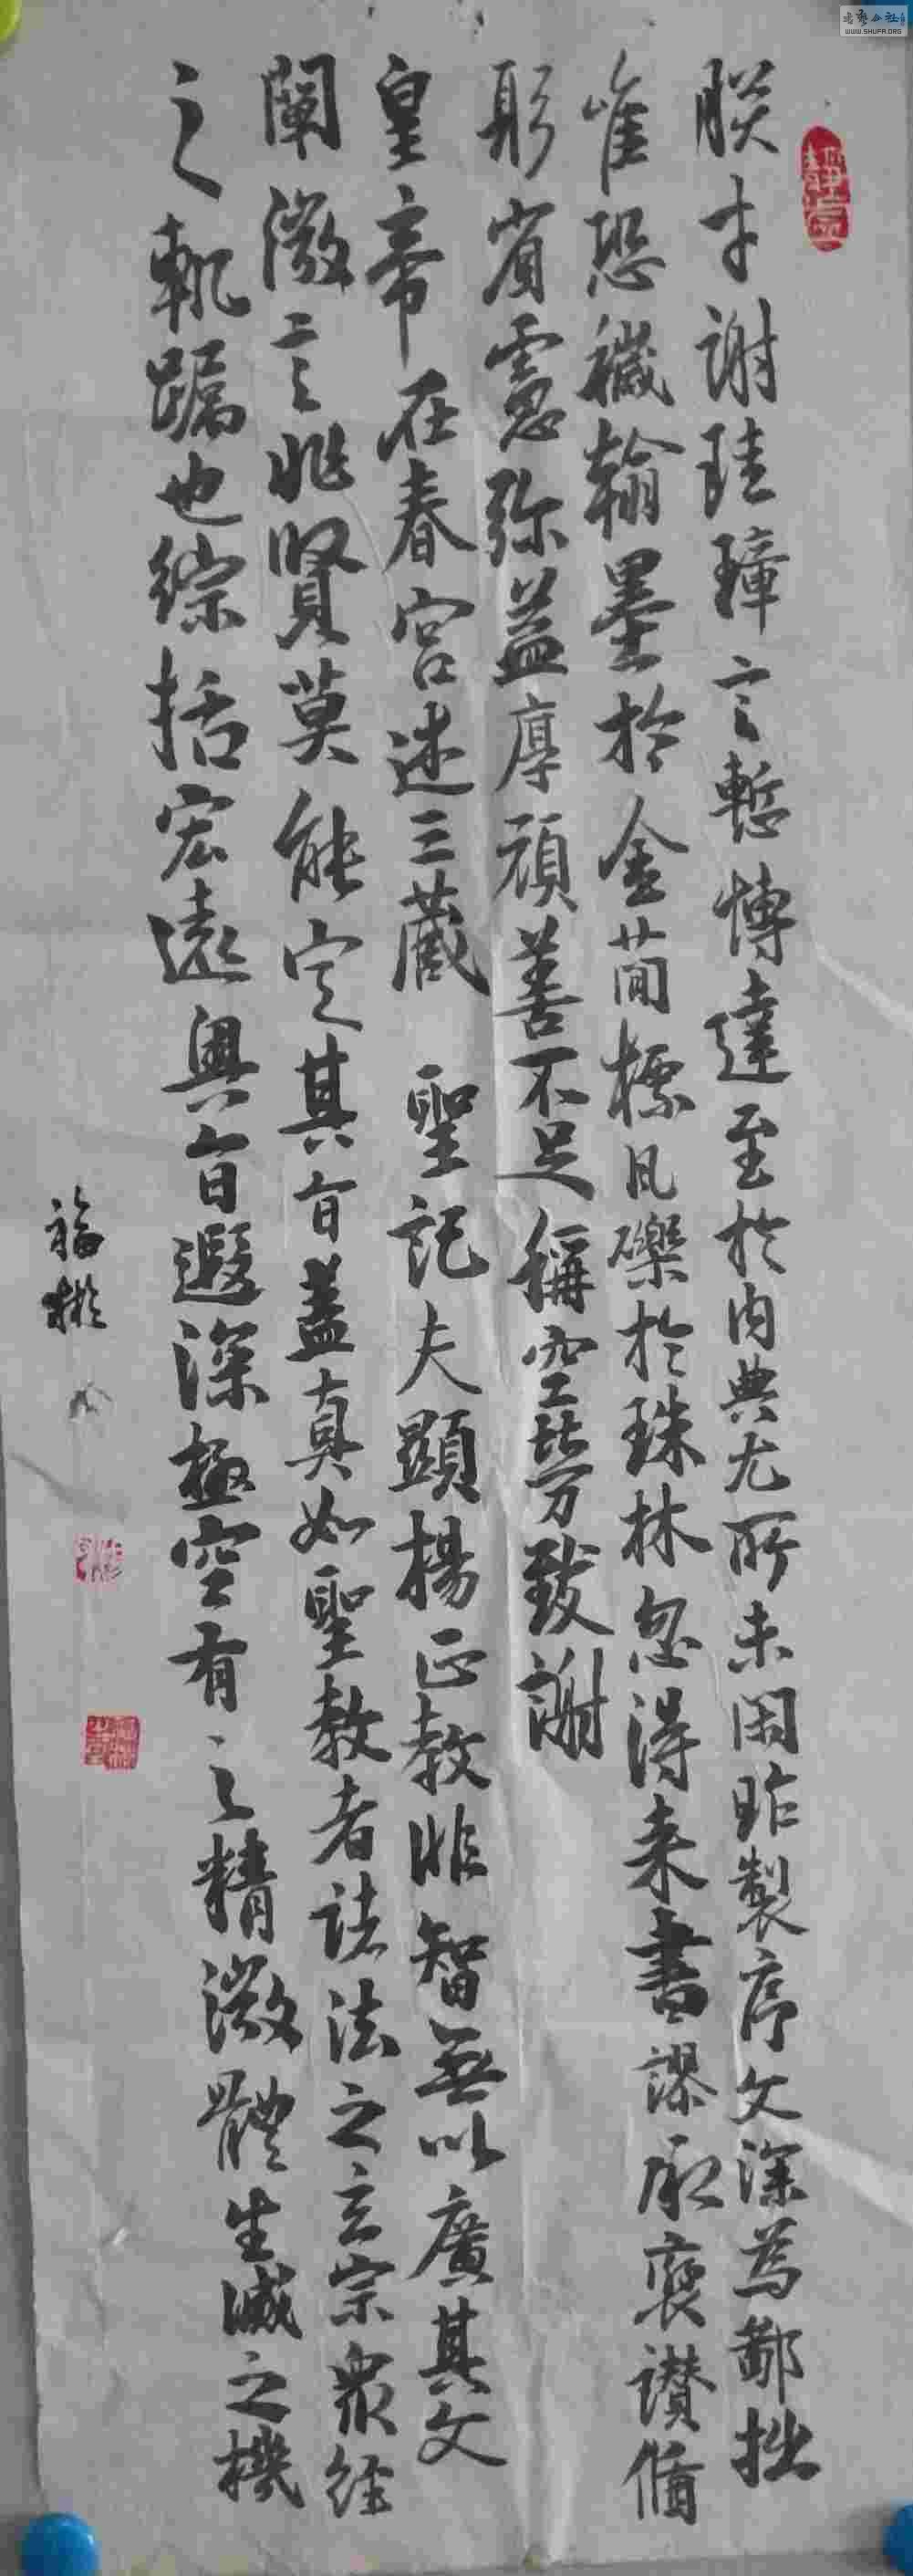 朕才謝珪璋言慙博達至於内典尤所未閑昨製序文深為鄙拙
唯恐穢翰墨於金蕳標凡礫於珠林忽得来書謬承褒讃循
躬省慮弥益厚顔善不足稱空勞致謝
皇帝在春宮述三蔵 聖記夫顯楊正教非智無以廣其文
闡微言非賢莫能定其旨盖真如聖教者諸法之玄宗衆经
之軌躅也綜括宏遠奥旨遐深極空有之精微體生滅之機
福彬
WWW.SHUFA.ORG